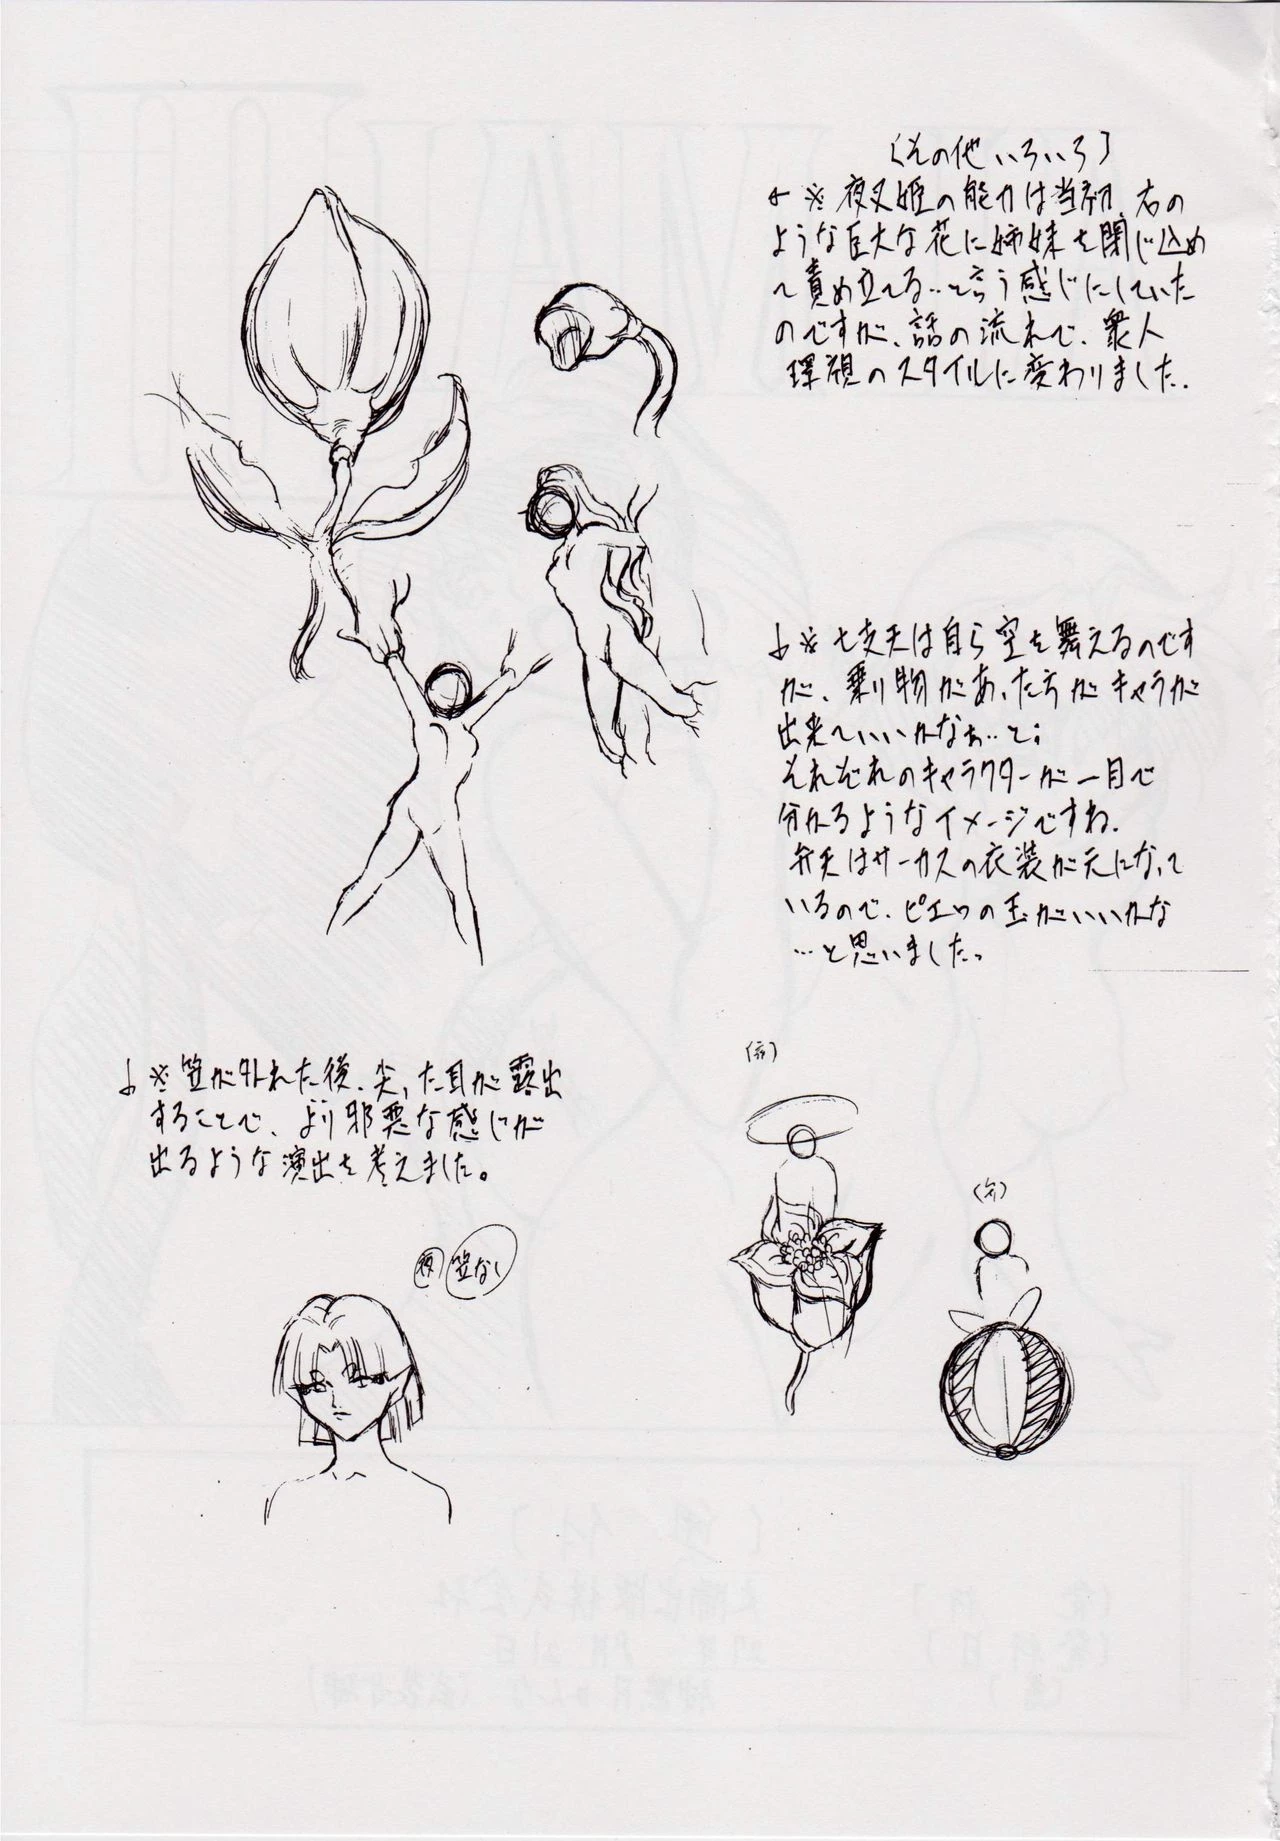 〔その他いろいろ〕
←※夜叉姫の能力は当初、右の
ような巨大な花に姉妹を閉じ込め
て責め立てる…と言う感じにしていた
のですが、話の流れで、衆人
環視のスタイルに変わりました.
↓※七支天は自ら空を舞えるのです
が、乗り物があったらがキャラが
出来ていいかなぁ…と;
それぞれのキャラクターが一目で
分かるようなイメージですね.
弁天はサーカスの衣装が元になって
いるので、ピエロの玉がいいかな
…と思いました。
↓※笠が外れた後、尖った耳が露出
することで、より邪悪な感じが
出るような演出を考えました。
(夜)
(弁)
夜 笠なし